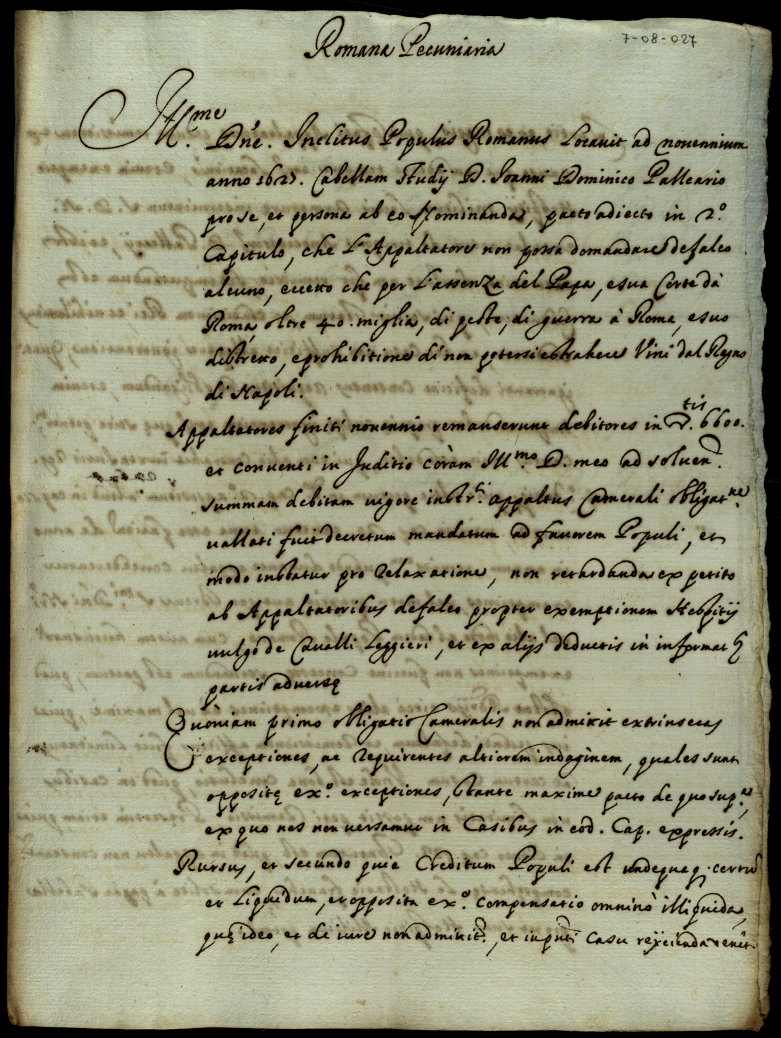 7-08-027
Romana Pecuniaria
Ill.me
Dn̄e. Inclitus Populus Romanus Locavit ad novennium
anno 162 . Gabellam Studij D. Joanni Dominico Palleario
pro se, et persona ab eo Nominanda, pacto adiecto in 2.o
Capitulo, che L'Appaltatore non possa domandare defalco
alcuno, eccetto che per L'assenza del Papa, e sua Corte da
Roma oltre 40. miglia, di peste, di guerra à Roma, e suo
distretto, e prohibitione di non potersi estrahere Vini dal Regno
di Napoli.
Appaltatores finiti novennio remanserunt debitores in ∇.tis 6600.
et conventi in Juditio coràm Ill.mo D. meo ad solven.
summam debitam vigore instr.ti appaltus Camerali obligat.ne
vallati fuit decretum mandatum ad favorem Populi, et
modo instatur pro relaxatione, non retardanda ex petito
ab Appaltatoribus defalco propter exemptionem Hospitij
vulgo de Cavalli Leggieri, et ex alijs deductis in informat.
partis adversę
Quoniam primo obligatio Cameralis non admittit extrinsecas
exceptiones, ac requirentes altiorem indaginem, quales sunt
oppositę ex.o exceptiones, stante maxime pacto de quo sup.ra
ex quo nos non versamur in Casibus in eod. Cap. expressis.
Rursus, et secundo quia Creditum Populi est undequaq; certū
et Liquidum, et opposita ex.o compensatio omninò illiquida,
quę ideo, et de iure non admittit., et in pn̄ti casu reijcienda venit